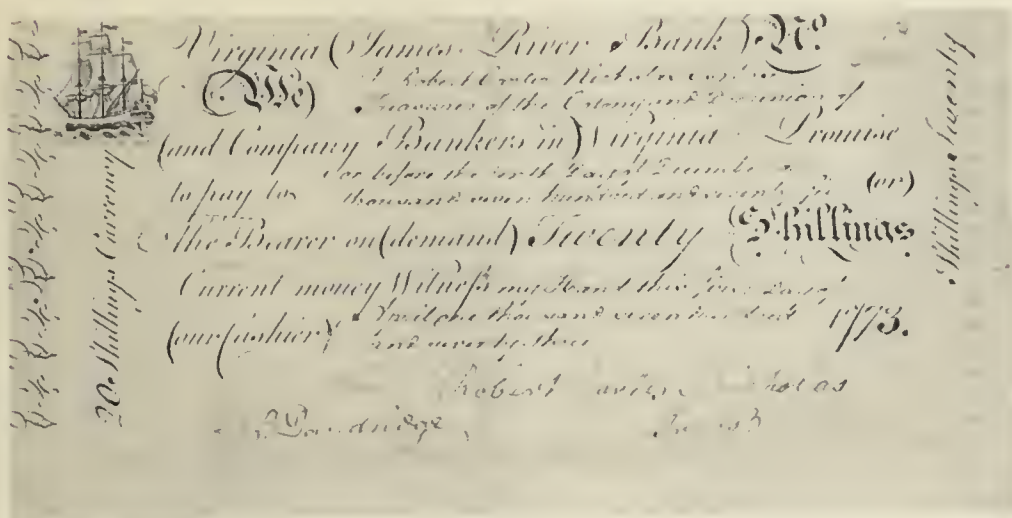 Virginia (James River Bank) No.
(We)
I Robert Carter Nicholas
Treasurer of the Colony and Dominion of
(and Company Bankers in) Virginia Promise
to pay to
or before the tenth Day of
thousand seven hundred and seventy (or)
the Bearer on (demand) Twenty (Shillings
Current money Witness my Hand this four Day of
(our Cashier)
April one thousand seven hundred 1773.
and seventy three
Robert
20 Shillings Currency
Shillings Twenty